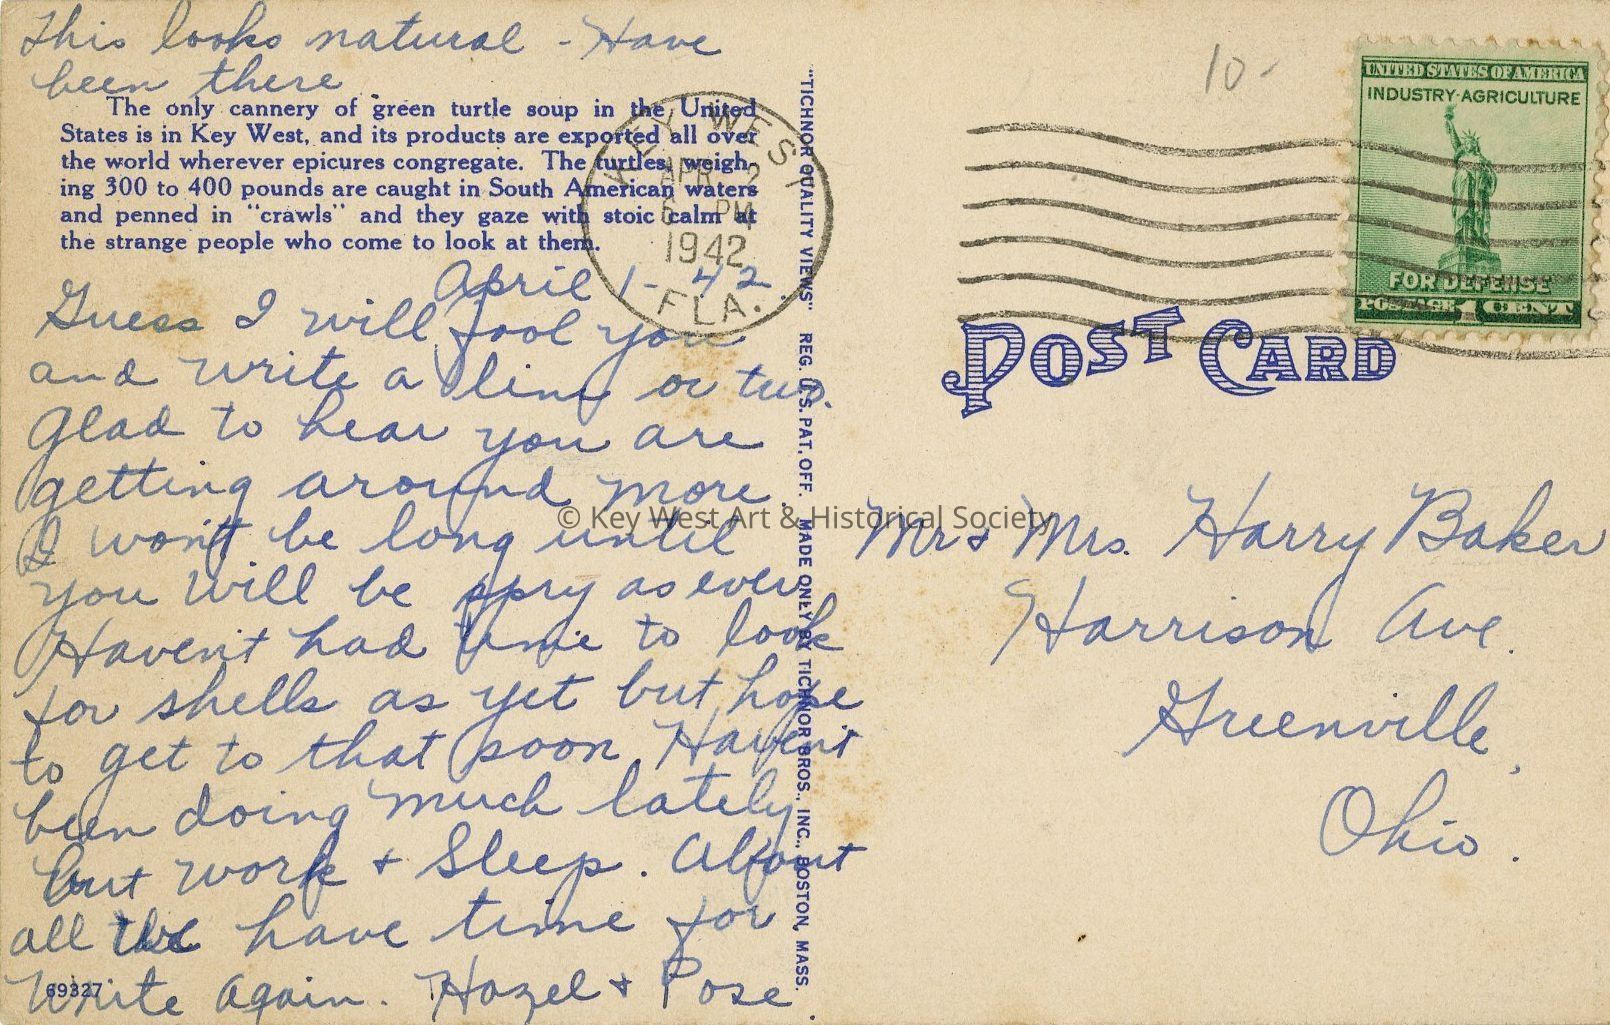 This looks natural - Have
been there
The only cannery of green turtle soup in the United
States is in Key West, and its products are exported all over
the world wherever epicures congregate. The turtles, weigh-
ing 300 to 400 pounds are caught in South American waters
and penned in "crawls" and they gaze with stoic calm at
the strange people who come to look at them.
April 1 - 42.
Guess I will fool you
and write a line or two.
Glad to hear you are
getting around more.
I won't be long until
you will be spry as ever
Haven't had time to look
for shells as yet but hope
to get to that soon Haven't
been doing much lately
but work & Sleep. About
all we have time for
Write Again. Hazel & Pose
69327
KEY WEST
APR 2
6 PM
1942
FLA.
"TICHNOR QUALITY VIEWS" REG. U.S. PAT. OFF. MADE ONLY BY TICHNOR BROS., INC., BOSTON, MASS.
10-
UNITED STATES OF AMERICA
INDUSTRY·AGRICULTURE
FOR DEFENSE
POSTAGE 1 CENT
POST CARD
Mr & Mrs. Harry Baker
Harrison Ave.
Greenville,
Ohio.
© Key West Art & Historical Society